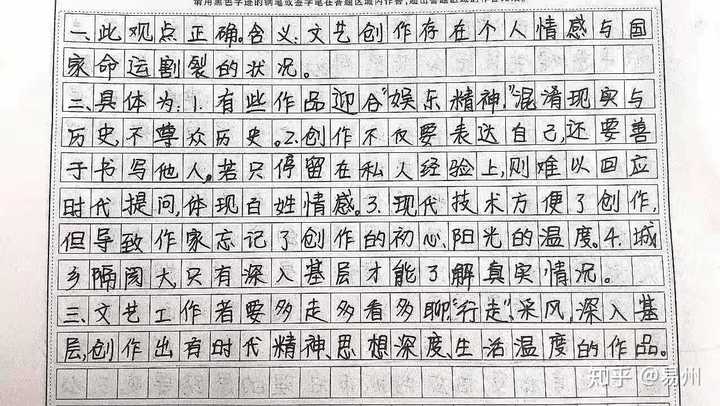 请用黑色字迹的钢笔或签字笔在答题区域内作答,超出答题区域的作答无效。
一、此观点正确。含义:文艺创作存在个人情感与国
家命运割裂的状况。
二、具体为:1.有些作品迎合"娱乐精神",混淆现实与
历史,不尊众历史。2.创作不仅要表达自己,还要善
于书写他人。若只停留在私人经验上,则难以回应
时代提问,体现百姓情感。3.现代技术方便了创作,
但导致作家忘记了创作的初心、阳光的温度。4.城
乡隔阂大,只有深入基层才能了解真实情况。
三、文艺工作者要多走多看多聊,"行走"、采风,深入基
层,创作出有时代精神、思想深度、生活温度的作品。
知乎 @易州